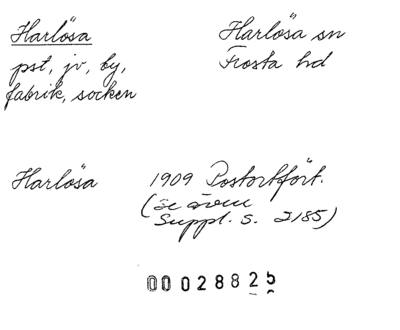 Harlösa
Harlösa sn
pst, jv, by,
Frosta hd
fabrik, socken
Harlösa
1909 Postortfört.
(se även
Suppl. s. 2185)
00 028825